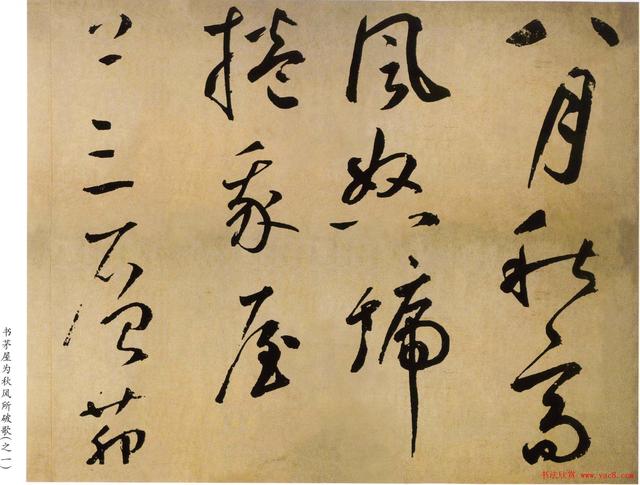 八月秋高
風怒號
捲我屋
上三重茆
书茅屋为秋风所破歌(之一)
书法欣赏 www.yac8.com